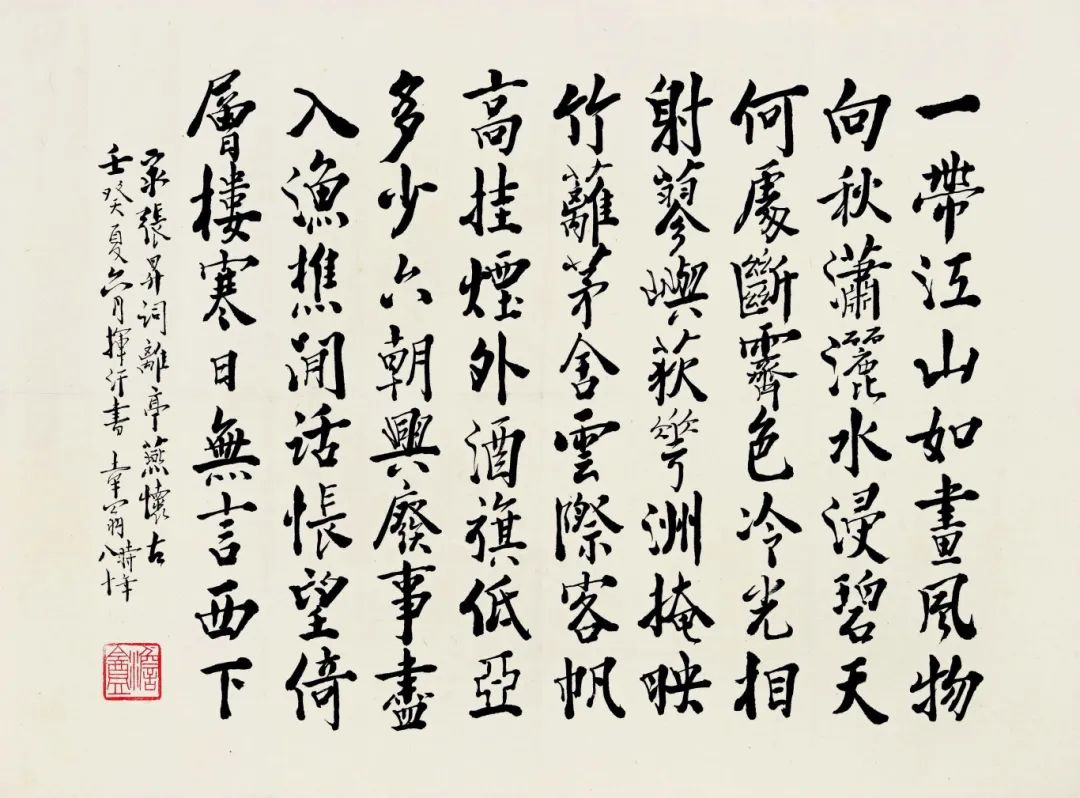 一帶江山如畫風物
向秋瀟灑水浸碧天
何處斷霽色冷光相
射蓼嶼荻華洲掩映
竹籬茅舍雲際客帆
高挂煙外酒旗低亞
多少六朝興廢事盡
入漁樵閒話悵望倚
層樓寒日無言西下
宋張昇詞離亭燕懷古
壬癸夏六月揮汗書 翁時年八十
澹盦